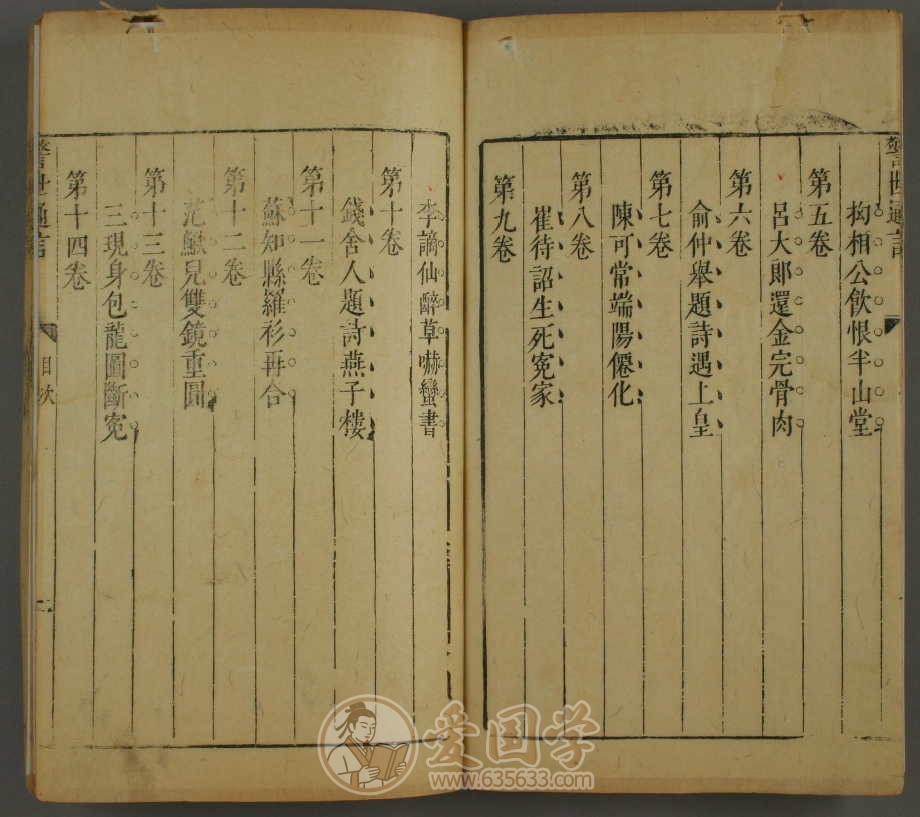 警世通言
拗相公飲恨半山堂
第五卷
呂大郎還金完骨肉
第六卷
俞仲舉題詩遇上皇
第七卷
陳可常端陽僊化
第八卷
崔待詔生死冤家
第九卷
李謫仙醉草嚇蠻書
第十卷
錢舍人題詩燕子樓
第十一卷
蘇知縣羅衫再合
第十二卷
范鰍兒雙鏡重圓
第十三卷
三現身包龍圖斷冤
第十四卷
警世通言
目次
二
爱国学
www.635633.com